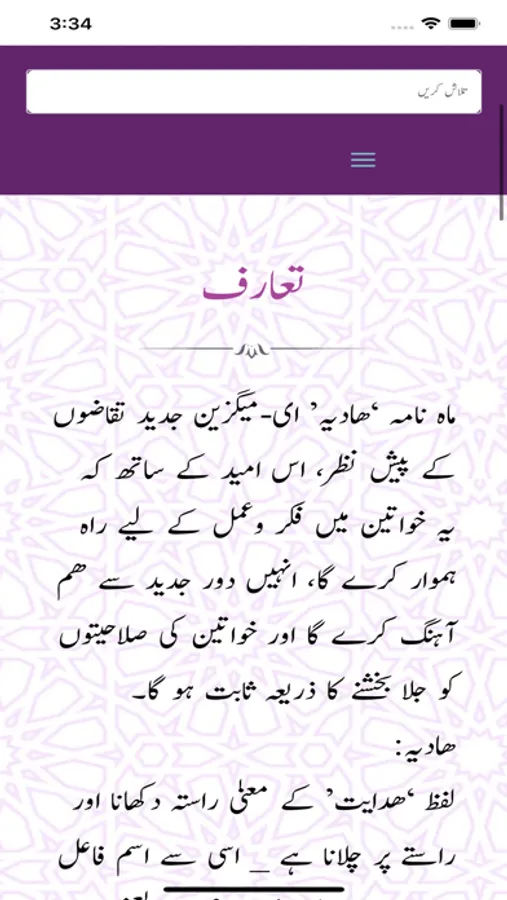 3:34
تلاش کریں
تعارف
ماہ نامہ ‘ھادیہ’ ای-میگزین جدید تقاضوں
کے پیش نظر، اس امید کے ساتھ کہ
یہ خواتین میں فکر وعمل کے لیے راہ
ہموار کرے گا، انہیں دور جدید سے ھم
آہنگ کرے گا اور خواتین کی صلاحیتوں
کو جلا بخشنے کا ذریعہ ثابت ہو گا۔
ھادیہ:
لفظ ‘ھدایت’ کے معنیٰ راستہ دکھانا اور
راستے پر چلانا ہے _ اسی سے اسم فاعل